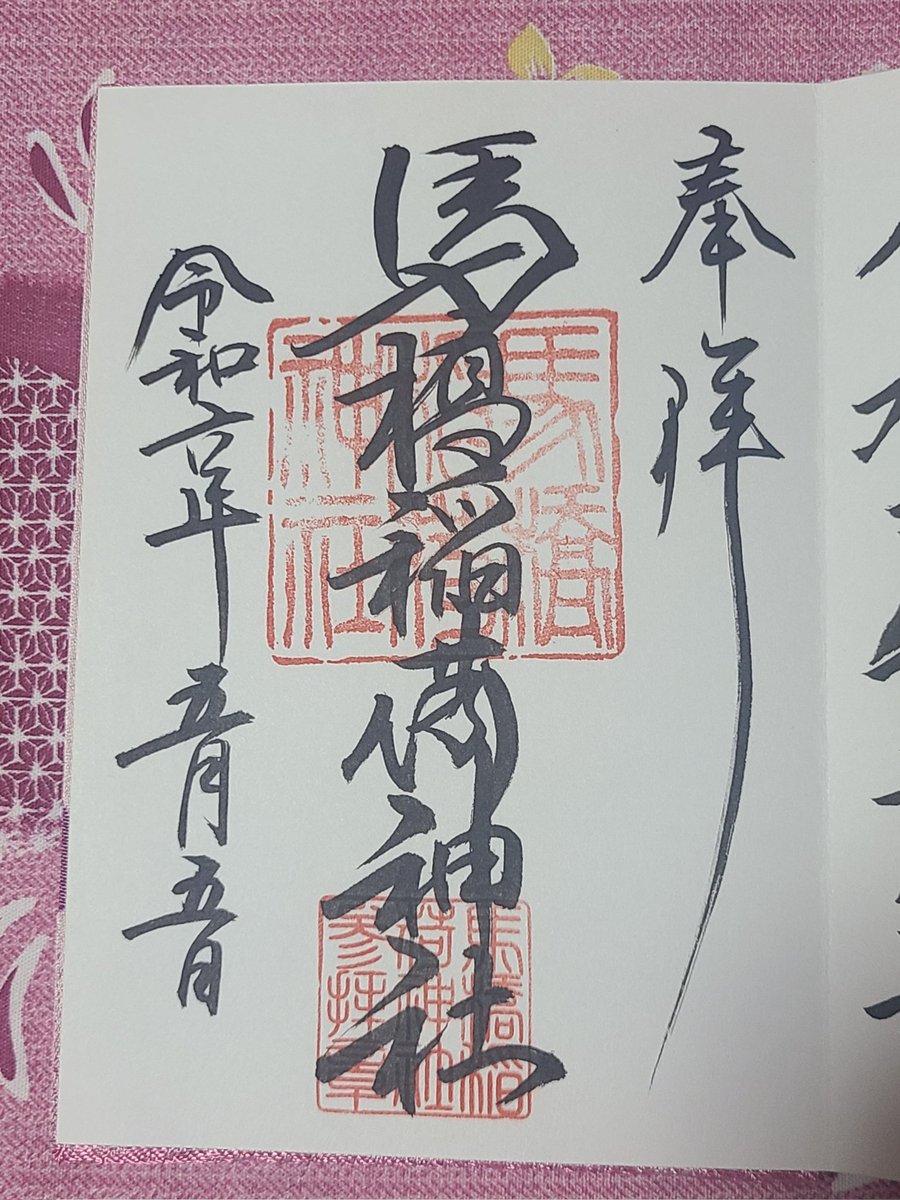 奉拝
馬橋稲荷神社
令和六年五月五日
馬橋
稲荷
神社
馬橋稲
荷神社
参拝章